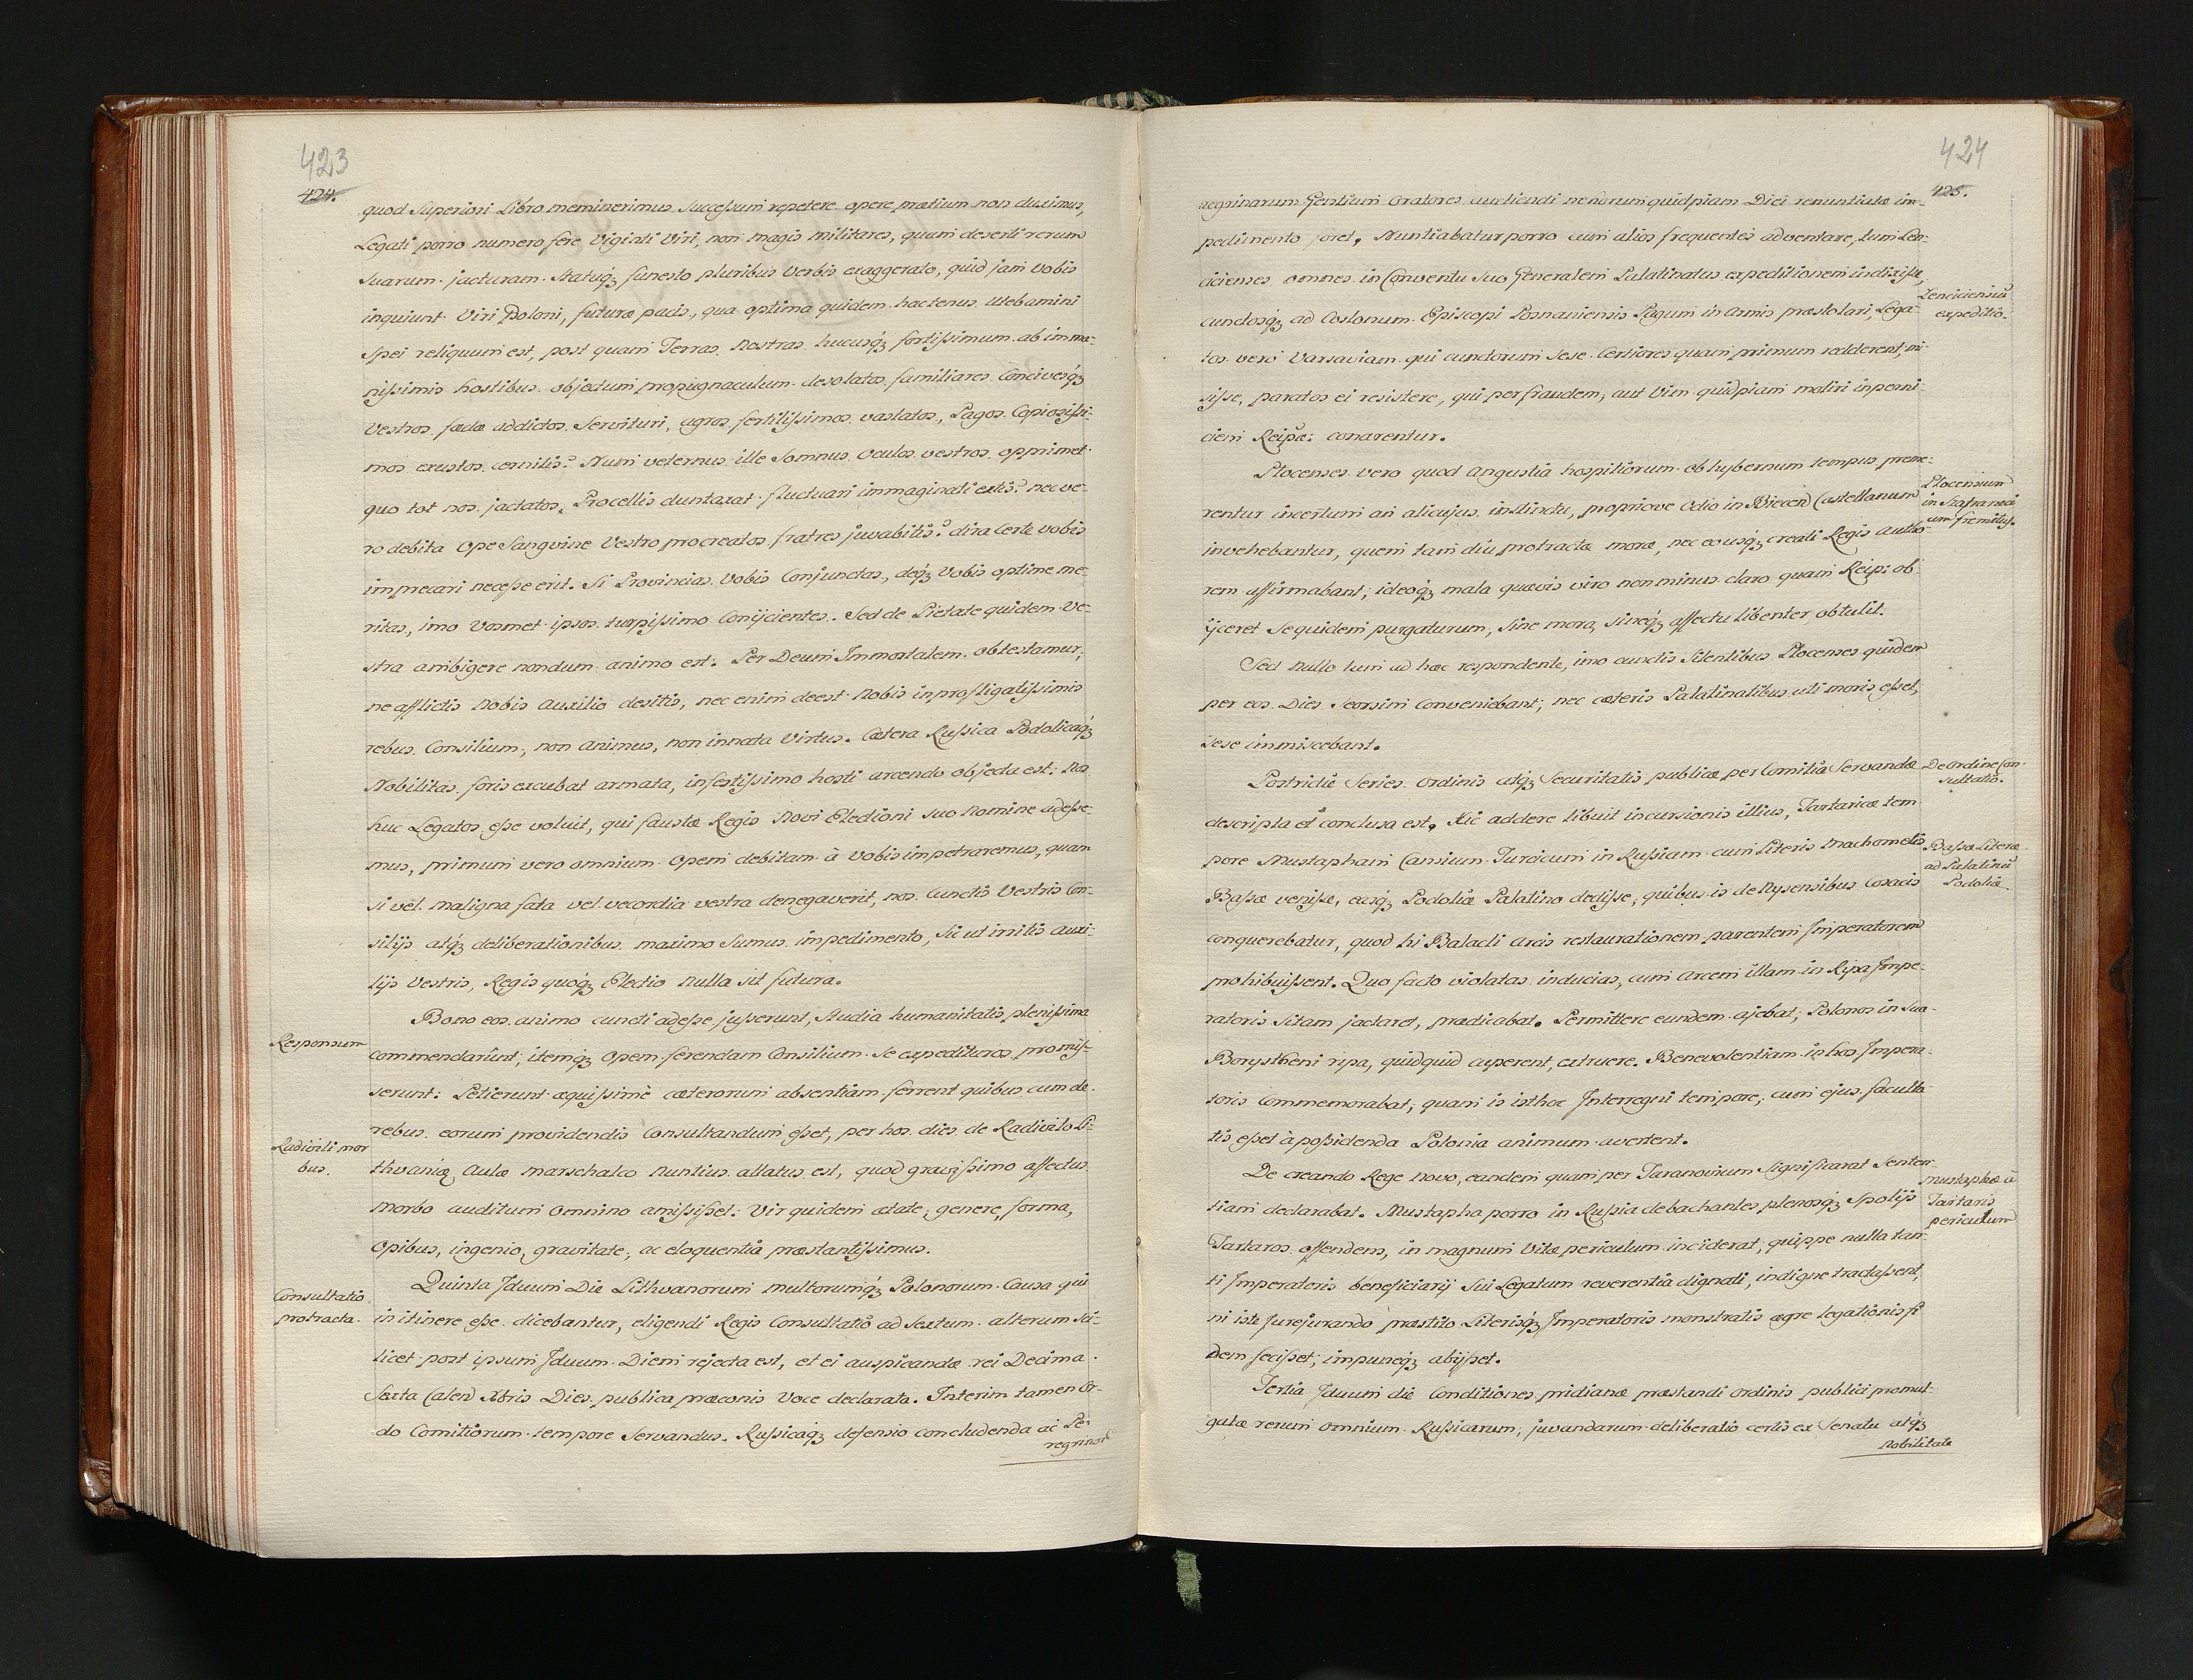 423
424.
quod Superiori Libro meminerimus Successum repetere operæ pretium non duximus,
Legati porro numero fere Viginti Viri, non magis militares, quam deserti rerum
Suarum jacturam Statuq́ funesto pluribus verbis exaggerato, quid jam vobis
inquiunt Viri Poloni, futuræ pacis, qua optima quidem hactenus utebamini
Spei reliquum est, post quam Terras Nostras hucusq́ fortissimum ab imma-
nissimis hostibus objectum propugnaculum desolatas familiares Concivesq́
Vestros fædæ addictos Servituri, agros fertilissimos vastatos, Pagos Copiosissi-
mos exustos cernitis? Num veternus ille Somnus Oculos vestros opprimet
quo tot nos jactatos, Procellis duntaxat fluctuari immaginati estis? nec ve-
ro debita Ope Sangvine Vestro procreatos fratres juvabitis? dira Certe vobis
imprecari necesse erit. Si Provincias Vobis Conjunctas, deq́ Vobis optime me-
ritas, imo Vosmet ipsos turpissimo Conijcientes. Sed de Pietate quidem Ve-
stra ambigere nondum animo est. Per Deum Immortalem obtestamur;
ne afflictis Nobis Auxilio desitis, nec enim deest Nobis in profligatissimis
rebus Consilium, non animus, non innata Virtus. Cætera Russica Podolicaq́
Nobilitas foris excubat armata, infestissimo hosti arcendo objecta est: Nos
huc Legatos esse voluit, qui faustæ Regis Novi Electioni suo Nomine adesse-
mus, primum vero omnium Opem debitam à Vobis impetraremus, quam
si vel maligna fata vel vecordia vestra denegaverit, nos Cunctis Vestris Con-
silijs atq́ deliberationibus maximo Sumus impedimento, Sic ut irritis Auxi-
lijs Vestris, Regis quoq́ Electio Nulla sit futura.
Bono eos animo cuncti adesse jusserunt, Studia humanitatis plenissima
Responsum
commendarunt, itemq́ Opem ferendam Consilium Se expedituros promis-
serunt: Petierunt æquissimè cæterorum absentiam ferrent quibus cum de
rebus eorum providendis Consultandum esset, per hos dies de Radivilo Li-
Radivili mor
bus.
thvaniæ Aulæ Marschalco Nuntius allatus est, quod gravissimo affectus
Morbo auditum Omnino amississet: Vir quidem ætate, genere, forma,
Opibus, ingenio, gravitate, ac eloquentia præstantissimus.
Quinta Iduum Die Lithvanorum multorumq́ Polonorum Causa qui
Consultatio
protracta.
in itinere esse dicebantur, eligendi Regis Consultatio ad Sextum alterum Sci-
licet post ipsum Iduum Diem rejecta est, et ei auspicandæ rei Decima
Sexta Calen Xbris Dies publica præconis Voce declarata. Interim tamen Or-
do Comitiorum tempore Servandus. Russicaq́ defensio concludenda ac Pe-
regrinor
424
425.
aegrinarum Gentium Oratores audiendi ne horum quidpiam Diei renuntiatæ im-
pedimento foret. Nuntiabatur porro cum alios frequentes adventare, tum Len-
cicienses omnes in Conventu suo Generalem Palatinatus expeditionem indixisse,
Lenciciensiũ
expeditio.
cunctosq́ ad Costonum Episcopi Posnaniensis Pagum in Armis præstolari, Lega-
tos vero Varsaviam qui cunctorum Sese Certiores quam primum redderent, mi-
sisse, paratos ei resistere, qui per fraudem, aut Vim quidpiam moliri in perni-
ciem Reipæ: conarentur.
Plocenses vero quod angustia hospitiorum ob hybernum tempus preme-
Plocensium
in Szafraneci
um fremitus.
rentur incertum an alicujus instinctu, propriove Odio in Biecen Castellanum
invehebantur, quem tam diu protractæ moræ, nec eousq́ creati Regis Autho-
rem affirmabant, ideoq́ mala quævis viro non minus claro quam Reip: ob
ijceret Se quidem purgaturum, Sine mora, sineq́ affectu libenter obtulit.
Sed Nullo tum ad hæc respondente, imo cunctis Silentibus Plocenses quidem
per eos Dies Seorsim Conveniebant; nec cæteris Palatinatibus uti moris esset,
Sese immiscebant.
Postridiè Series ordinis atq́ Securitatis publicæ per Comitia Servandæ
De ordine Con-
sultatio.
descripta et conclusa est. Hic addere libuit incursionis illius, Tartaricæ tem
pore Mustapham Camsium Turcicum in Russiam cum Literis Machometis
Bassæ Literæ
ad Palatinũ
Podoliæ.
Bassæ venisse, easq́ Podoliæ Palatino dedisse, quibus is de Nysensibus Cosacis
conquerebatur, quod hi Balacli arcis restaurationem parentem Imperatorem
prohibuissent. Quo facto violatas inducias, cum Arcem illam in Ripa Impe-
ratoris Sitam jactaret, prædicabat. Permittere eundem ajebat, Polonos in Sua
Borystheni ripa, quidquid cuperent, extruere. Benevolentiam is hos Impera-
toris Commemorabat, quam is isthoc Interregni tempore, cum ejus faculta-
tis esset à possidenda Polonia animum avertent.
De creando Rege Novo, eandem quam per Taranovium Significarat Senten-
Mustaphæ à
Tartaris
periculum
tiam declarabat. Mustapha porro in Russia debachantes plenosq́ Spolijs
Tartaros offendens, in magnum Vitæ periculum inciderat, quippe nulla tan
ti Imperatoris beneficiarij Sui Legatum reverentia dignati, indigne tractassent,
ni iste Jurejurando præstito Literisq́ Imperatoris monstratis ægre legationis fi
dem fecisset, impuneq́ abijsset.
Tertia Iduum die Conditiones pridianæ præstandi ordinis publici promul-
gatæ rerum omnium Russicarum, juvandarum deliberatio certis ex Senatu atq́
Nobilitate